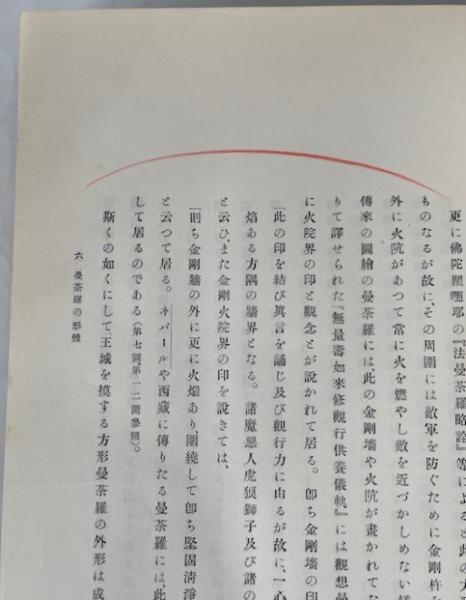 更に佛陀瞿呬耶の『法曼荼羅略詮』等によると此の
ものなるが故に、その周圍には敵軍を防ぐために金剛杵
外に火阬があつて常に火を燃やし敵を近づかしめない
傳來の圖繪の曼荼羅には、此の金剛墻や火阬が畫かれて
りて譯せられた『無量壽如來修觀行供養儀軌』には觀想
に火院界の印と觀念とが説かれて居る。卽ち金剛墻の印
「此の印を結び眞言を誦し及び觀行力に由るが故に、一心
焰ある方隅の牆界となる。諸魔惡人虎狼獅子及び諸の
と云ひ、また金剛火院界の印を説きては、
「則ち金剛牆の外に更に火焰あり、圍繞して卽ち堅固淸淨
と云つて居る。ネパールや西藏に傳りたる曼荼羅には、此
して居るのである(第七圖第一二圖參照)。
斯くの如くにして、王城を摸する方形曼荼羅の外形は成
六 曼荼羅の形體